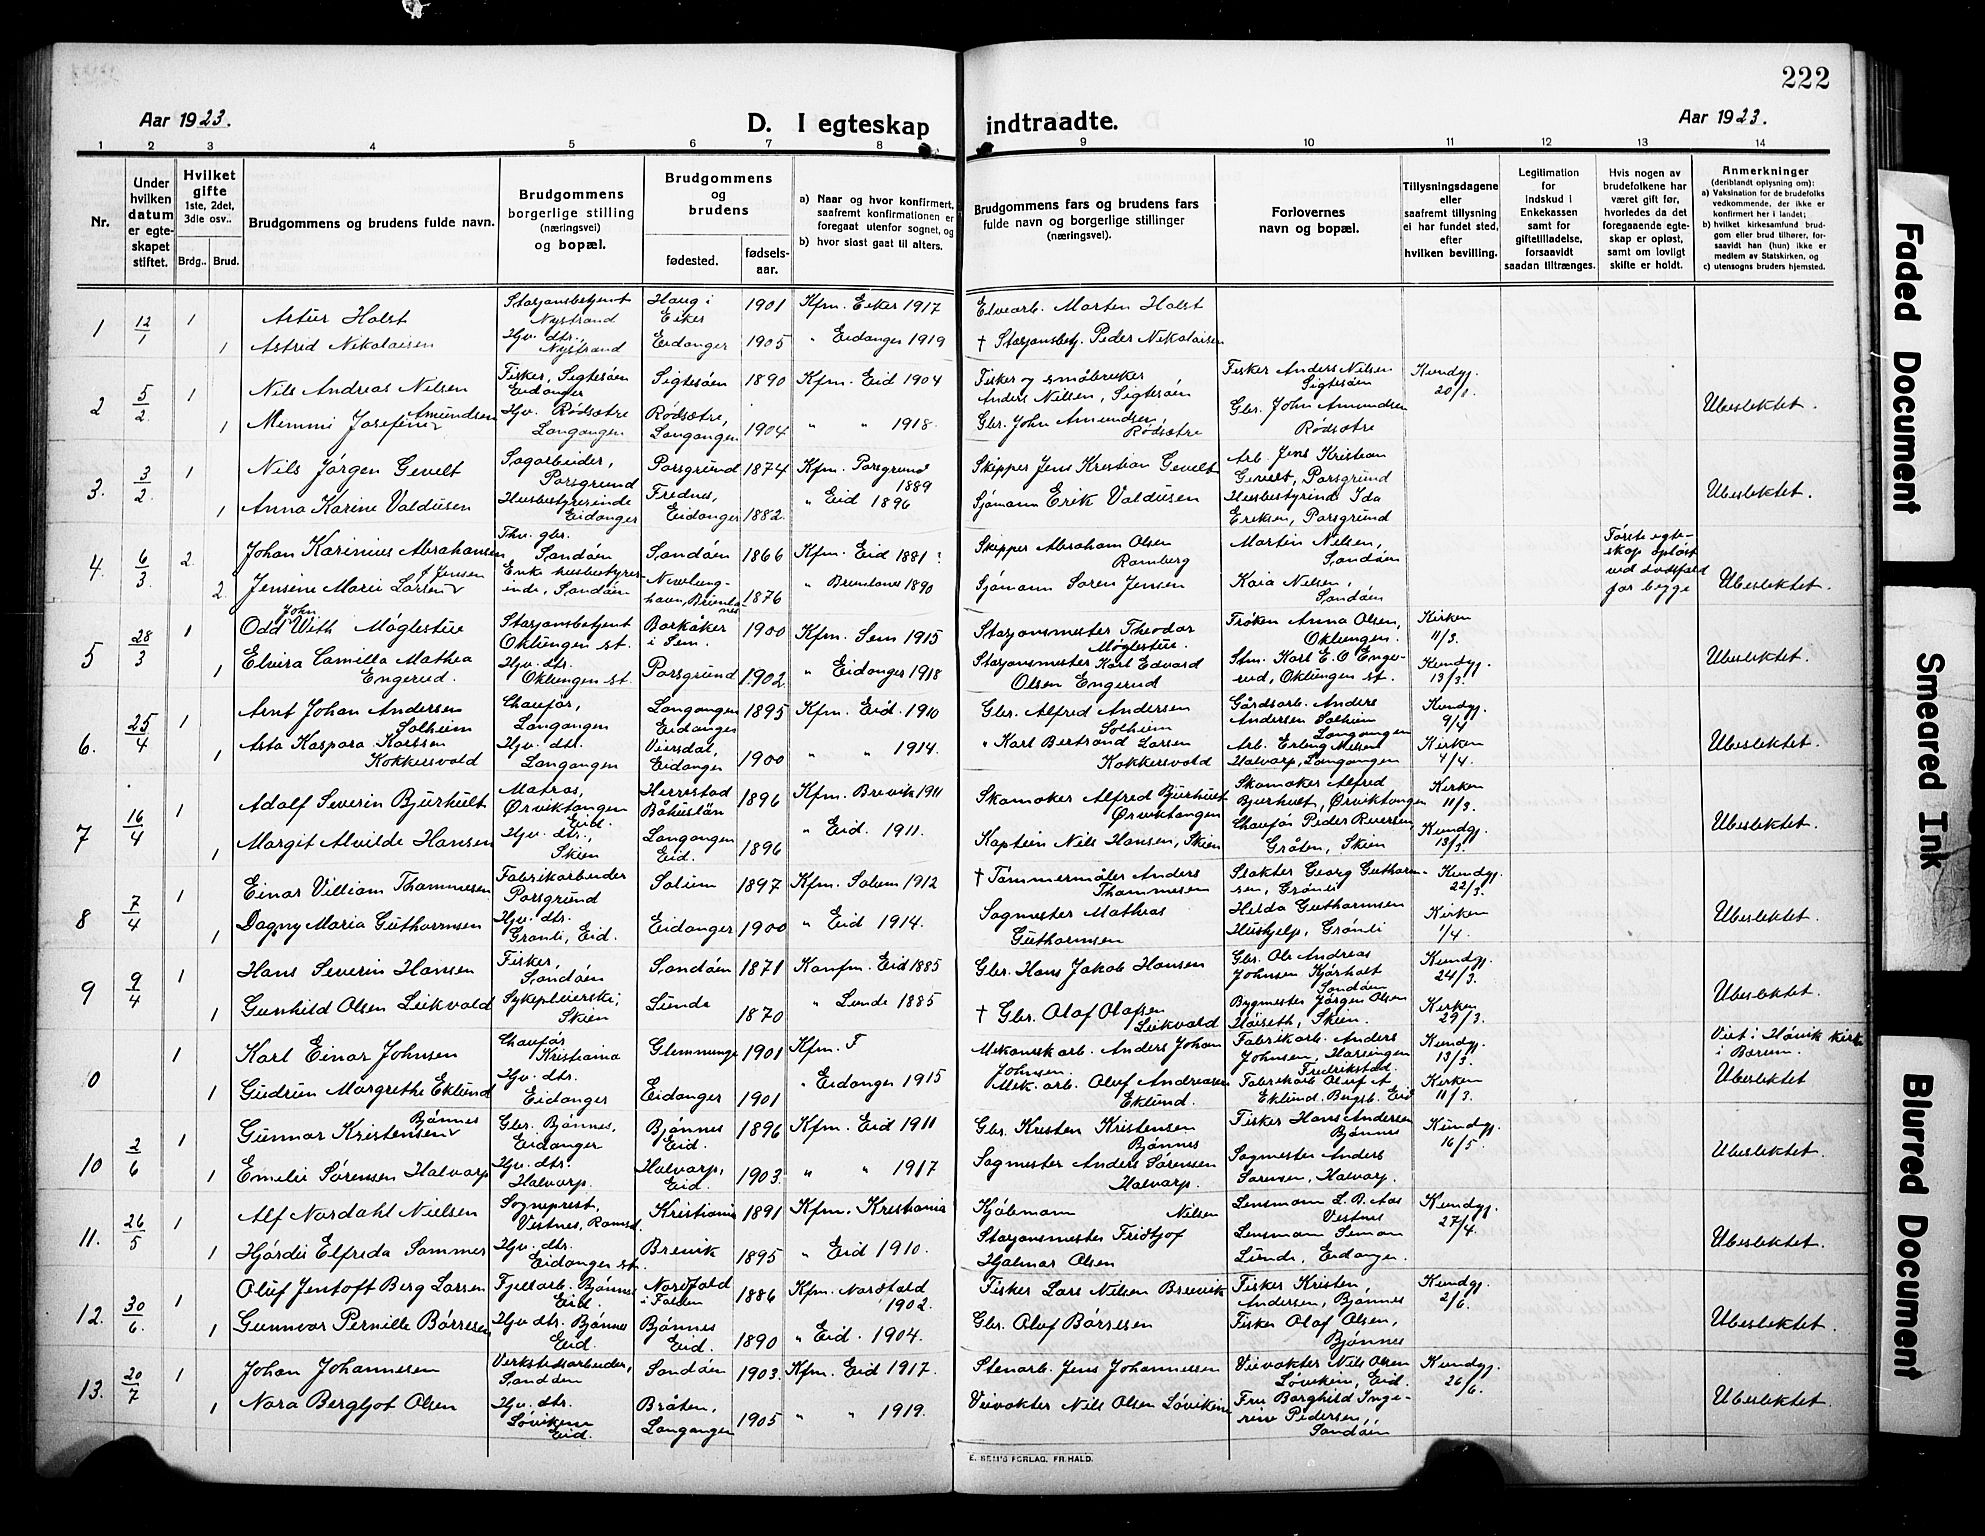 222
Aar 1923.
D. I egteskap indtraadte.
Aar 1923.
1 2 3 4 5 6 7 8 9 10 11 12 13 14
Nr.
Under hvilken datum er egteskapet stiftet.
Hvilket gifte 1ste, 2det, 3die osv..
Brdg.. Brud.
Brudgommens og brudens fulde navn.
Brudgommens borgerlige stilling (næringsvei) og bopæl.
Brudgommens og brudens
fødested. fødsels-aar.
a) Naar og hvor konfirmert, saafremt konfirmationen er foregaat utenfor sognet, og
b) hvor sidst gaat til alters.
Brudgommens fars og brudens fars fulde navn og borgerlige stillinger (næringsvei).
Forlovernes navn og bopæl.
Tillysningsdagene eller saafremt tillysning ei har fundet sted, efter hvilken bevilling.
Legitimation for indskud i Enkekassen samt for giftetilladelse, forsaavidt saadan tiltrænges.
Hvis nogen av brudefolkene har været gift før, hvorledes da det foregaaende egteskap er opløst, samt om lovligt skifte er holdt.
Anmerkninger (deriblandt oplysning om):
a) Vaksination for de brudefolks vedkommende, der ikke er konfirmert her i landet;
b) hvilket kirkesamfund brudgom eller brud tilhører, forsaavidt han (hun) ikke er medlem av Statskirken, og
c) utensogns bruders hjemsted.
1 12/1 1 Artur Holst Stasjonsbetjent Nystrand Haug i Eiker 1901 Kfm. Eiker 1917 Elvearb. Morten Holst
1 Astrid Nikolaisen Hjv. dtr., Nystrand Eidanger 1905 " Eidanger 1919 † Stasjonsbetj. Peder Nikolaisen
2 5/2 1 Nils Andreas Nilsen Fisker, Sigtesøen Eidanger Sigtesøen 1890 Kfm. Eid 1904 Fisker og småbruker Anders Nilsen, Sigtesøen Fisker Anders Nilsen Sigtesøen Kundgj. 20/1
1 Memmi Josefine Amundsen Hjv. Rødsætre Langangen Rødsætre, Langangen 1904 " " 1918 Gbr. John Amundsen, Rødsætre Gbr. John Amundsen Rødsætre Ubeslektet.
3. 3/2 1 Nils Jørgen Gevelt Sagarbeider, Porsgrund Porsgrund 1874 Kfm. Porsgrund 1889 Skipper Jens Kristian Gevelt Arb. Jens Kristian Gevelt, Porsgrund
1 Anna Karine Valdusen Husbestyrerinde Eidanger Frednes, Eidanger 1882. " Eid 1896 Sjømann Erik Valdusen Husbestyrinde Ida Eriksen, Porsgrund Ubeslektet.
4. 6/3 2. Johan Karinius Abrahansen Thv. gbr. Sandøen Sandøen 1866 Kfm. Eid 1881? Skipper Abraham Olsen Ramberg Martin Nilsen, Sandøen Første egteskap opløst ved dødsfald for begge
2. Jensine Marie Larsen f. Jensen Enke husbestyrerinde, Sandøen Nevlunghavn, Brunlanes 1876 " Brunlanes 1890 Sjømann Søren Jensen Kaia Nilsen, Sandøen Ubeslektet.
5 28/3 1 Odd John With Møglestue Stasjonsbetjent Oklungen st. Barkåker i Sem. 1900 Kfm. Sem 1915 Stasjonsmester Theodor Møglestue. Frøken Anna Olsen, Oklungen. Kirken 11/3.
1 Elvira Camilla Mathea Engerud. Hjv. dtr. Oklungen st. Porsgrund 1902 " Eidanger 1918 Stasjonsmester Karl Edvard Olsen Engerud Stm. Karl E. O Engerud, Oklungen st. Kundgj. 13/3. Ubeslektet.
6. 25/4 1 Arnt Johan Andersen Solheim Chaufør, Langangen Langangen Eidanger 1895 Kfm. Eid. 1910 Gbr. Alfred Andersen Solheim Gårdsarb. Anders Andersen Solheim Langangen Kundgj. 9/4
1 Asta Kaspara Karlsen Kokkersvold Hjv. dtr. Langangen Viersdal, Eidanger 1900 " " 1914. " Karl Bertrand Larsen Kokkersvold Arb. Erling Nilsen Halvarp, Langangen Kirken 4/4. Ubeslektet.
7 16/4 1 Adolf Severin Bjurhult Matros, Ørviktangen Eid. Herrestad Båhuslän 1896 Kfm. Brevik 1911 Skomaker Alfred Bjurhult Ørviktangen Skomaker Alfred Bjurhult, Ørviktangen Kirken 11/3.
1 Margit Alvilde Hansen Hjv. dtr. Skien Langangen Eid. 1896 " Eid. 1911. Kaptein Nils Hansen, Skien Chaufør Peder Riversen, Gråten, Skien Kundgj. 13/3. Ubeslektet.
8 7/4 1 Einar Villiam Thommesen Fabrikarbeider Porsgrund Solum 1897 Kfm. Solum 1912 † Tømmermåler Anders Thommesen Slakter Georg Guthormsen, Grønli Kundgj. 22/3.
1 Dagny Maria Guthormsen Hjv. dtr. Grønli, Eid. Eidanger 1900 " Eid 1914. Sagmester Mathias Guthormsen Helda Guthormsen Hushjelp, Grønli Kirken 1/4. Ubeslektet.
9 9/4 1 Hans Severin Hansen Fisker, Sandøen Sandøen 1871 Konfm. Eid 1885 Gbr. Hans Jakob Hansen Gbr. Ole Andreas Johnsen Kjørholt Sandøen Kundgj. 24/3.
1 Gunhild Olsen Leikvold Sykepleierske, Skien Lunde 1870 " Lunde 1885 † Gbr. Olaf Olafsen Leikvold Bygmester Jørgen Olsen Høiseth, Skien. Kirken 29/3. Ubeslektet.
0 1 Karl Einar Johnsen Chaufør Kristiania Glemminge 1901 Kfm. F Mekanisk arb. Anders Johan Johnsen. Fabrikarb. Anders Johnsen, Fredrikstad. Kundgj. 13/3. Viet i Høvik kirke i Bærum.
1 Gudrun Margrethe Eklund Hjv. dtr. Eidanger Eidanger 1901 " Eidanger 1915 Mek. arb. Oluf Andreasen Eklund. Fabrikarb Oluf A Eklund. Bergsb. Eid Kirken 11/3. Ubeslektet
10 2/6 1 Gunnar Kristensen Bjønnes Gbr. Bjønnes, Eidanger Bjønnes Eid. 1896 Kfm. Eid 1911 Gbr. Kristen Kristensen Bjønnes Fisker Hans Andersen Bjønnes Kundgj. 16/5.
1 Emelie Sørensen Halvarp Hjv. dtr. Halvarp. Halvarp, Eid. 1903. " " 1917 Sagmester Anders Sørensen Halvarp. Sagmester Anders Sørensen, Halvarp. Ubeslektet.
11. 26/5 1 Alf Nordahl Nielsen Sogneprest, Vestnes, Romsd. Kristiania 1891 Kfm. Kristiania Kjøbmann Nilsen Lensmann L. B. Aas Vestnes Kundgj. 27/4.
1 Hjørdis Elfreda Sommer Hjv. dtr. Eidanger st. Brevik 1895 " Eid 1910. Stasjonsmester Fridtjof Hjalmar Olsen Lensmann Simon Lunde, Eidanger. Ubeslektet.
12. 30/6 1 Oluf Jentoft Berg Larsen Fjellarb. Bjønnes Eid. Nordfold i Folden 1886 Kfm. Nordfold 1902. Fisker Lars Nilsen Brevik Fisker Kristen Andersen, Bjønnes Kundgj. 2/6.
1 Gunnvor Pernille Børresen Hjv dtr. Bjønnes Eid. Bjønnes Eid. 1890 " Eid. 1904. Gbr. Oluf Børresen Fisker Olaf Olsen, Bjønnes Ubeslektet.
13. 20/7 1 Johan Johannesen Verkstedsarbeider, Sandøen Sandøen 1903. Kfm. Eid 1917. Stenarb. Jens Johannessen Veivokter Nils Olsen Løvikein, Eid. Kundgj. 26/6.
1 Nora Bergljot Olsen Hjv. dtr. Løvikein Eid. Bråten, Langangen 1905 " " 1919. Veivokter Nils Olsen Løvikein Fru Borghild Ingerine Pedersen, Sandøen Ubeslektet.
E. SEM'S FORLAG, FR.HALD.
Faded Document
Smeared Ink
Blurred Document